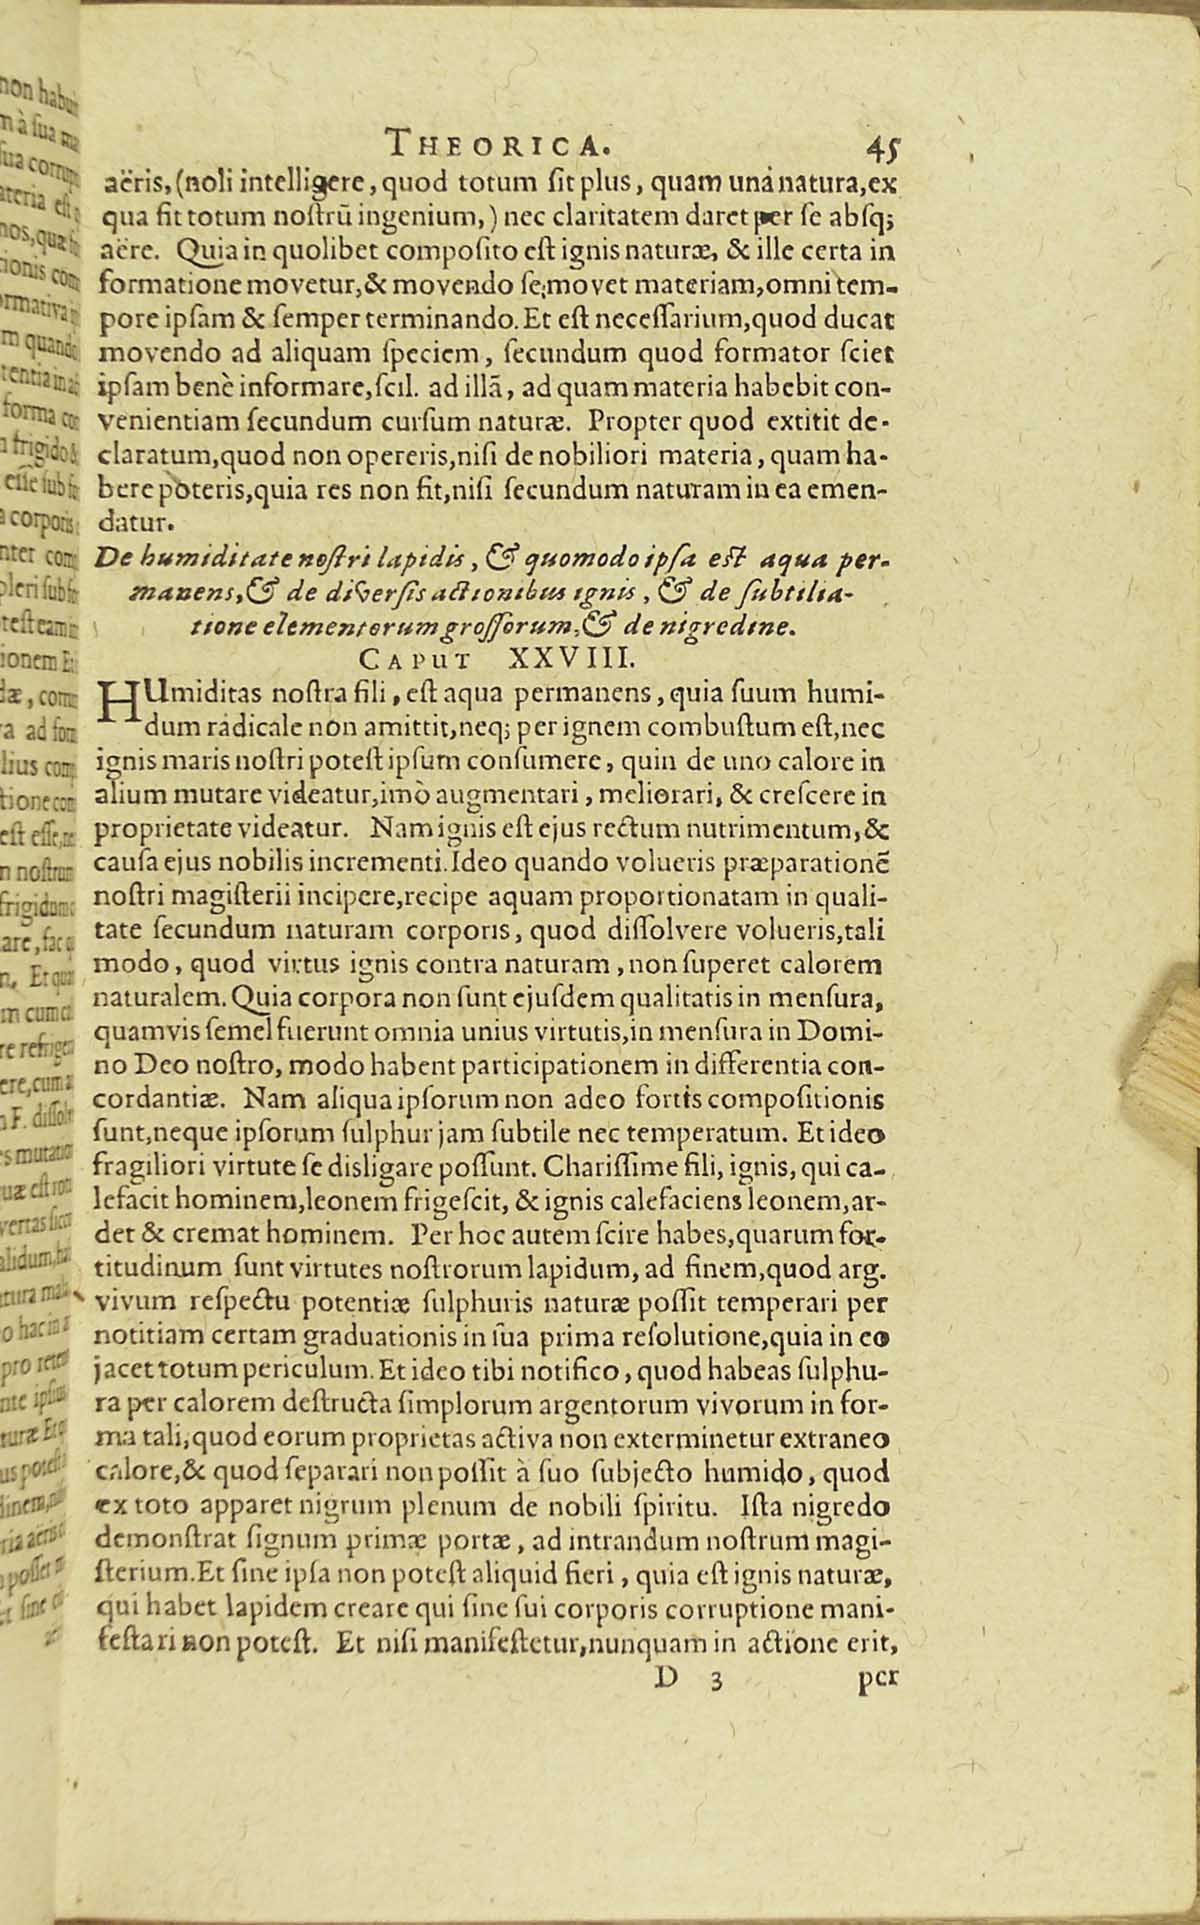 THEORICA. 45
aëris, (noli intelligere, quod totum ſit plus, quam una natura, ex
qua fit totum noſtrū ingenium,) nec claritatem daret per ſe abſq;
aëre. Quia in quolibet compoſito eſt ignis naturæ, & ille certa in
formatione movetur, & movendo ſe, movet materiam, omni tem-
pore ipſam & ſemper terminando. Et eſt neceſſarium, quod ducat
movendo ad aliquam ſpeciem, ſecundum quod formator ſciet
ipſam benè informare, ſcil. ad illā, ad quam materia habebit con-
venientiam ſecundum curſum naturæ. Propter quod extitit de-
claratum, quod non opereris, niſi de nobiliori materia, quam ha-
bere poteris, quia res non fit, niſi ſecundum naturam in ea emen-
datur.
De humiditate noſtri lapidis, & quomodo ipſa eſt aqua per-
manens, & de diverſis actionibus ignis, & de ſubtilia-
tione elementorum groſſorum, & de nigredine.
CAPUT XXVIII.
HUmiditas noſtra fili, eſt aqua permanens, quia ſuum humi-
dum radicale non amittit, neq; per ignem combuſtum eſt, nec
ignis maris noſtri poteſt ipſum conſumere, quin de uno calore in
alium mutare videatur, imò augmentari, meliorari, & creſcere in
proprietate videatur. Nam ignis eſt ejus rectum nutrimentum, &
cauſa ejus nobilis incrementi. Ideo quando volueris præparationē
noſtri magiſterii incipere, recipe aquam proportionatam in quali-
tate ſecundum naturam corporis, quod diſſolvere volueris, tali
modo, quod virtus ignis contra naturam, non ſuperet calorem
naturalem. Quia corpora non ſunt ejuſdem qualitatis in menſura,
quamvis ſemel fuerunt omnia unius virtutis, in menſura in Domi-
no Deo noſtro, modo habent participationem in differentia con-
cordantiæ. Nam aliqua ipſorum non adeo fortis compoſitionis
ſunt, neque ipſorum ſulphur jam ſubtile nec temperatum. Et ideo
fragiliori virtute ſe disligare poſſunt. Chariſſime fili, ignis, qui ca-
lefacit hominem, leonem frigeſcit, & ignis calefaciens leonem, ar-
det & cremat hominem. Per hoc autem ſcire habes, quarum for-
titudinum ſunt virtutes noſtrorum lapidum, ad finem, quod arg.
vivum reſpectu potentiæ ſulphuris naturæ poſſit temperari per
notitiam certam graduationis in ſua prima reſolutione, quia in eo
jacet totum periculum. Et ideo tibi notifico, quod habeas ſulphu-
ra per calorem deſtructa ſimplorum argentorum vivorum in for-
ma tali, quod eorum proprietas activa non exterminetur extraneo
calore, & quod ſeparari non poſſit à ſuo ſubjecto humido, quod
ex toto apparet nigrum plenum de nobili ſpiritu. Iſta nigredo
demonſtrat ſignum primæ portæ, ad intrandum noſtrum magi-
ſterium. Et ſine ipſa non poteſt aliquid fieri, quia eſt ignis naturæ,
qui habet lapidem creare qui ſine ſui corporis corruptione mani-
feſtari non poteſt. Et niſi manifeſtetur, nunquam in actione erit,
D 3 per